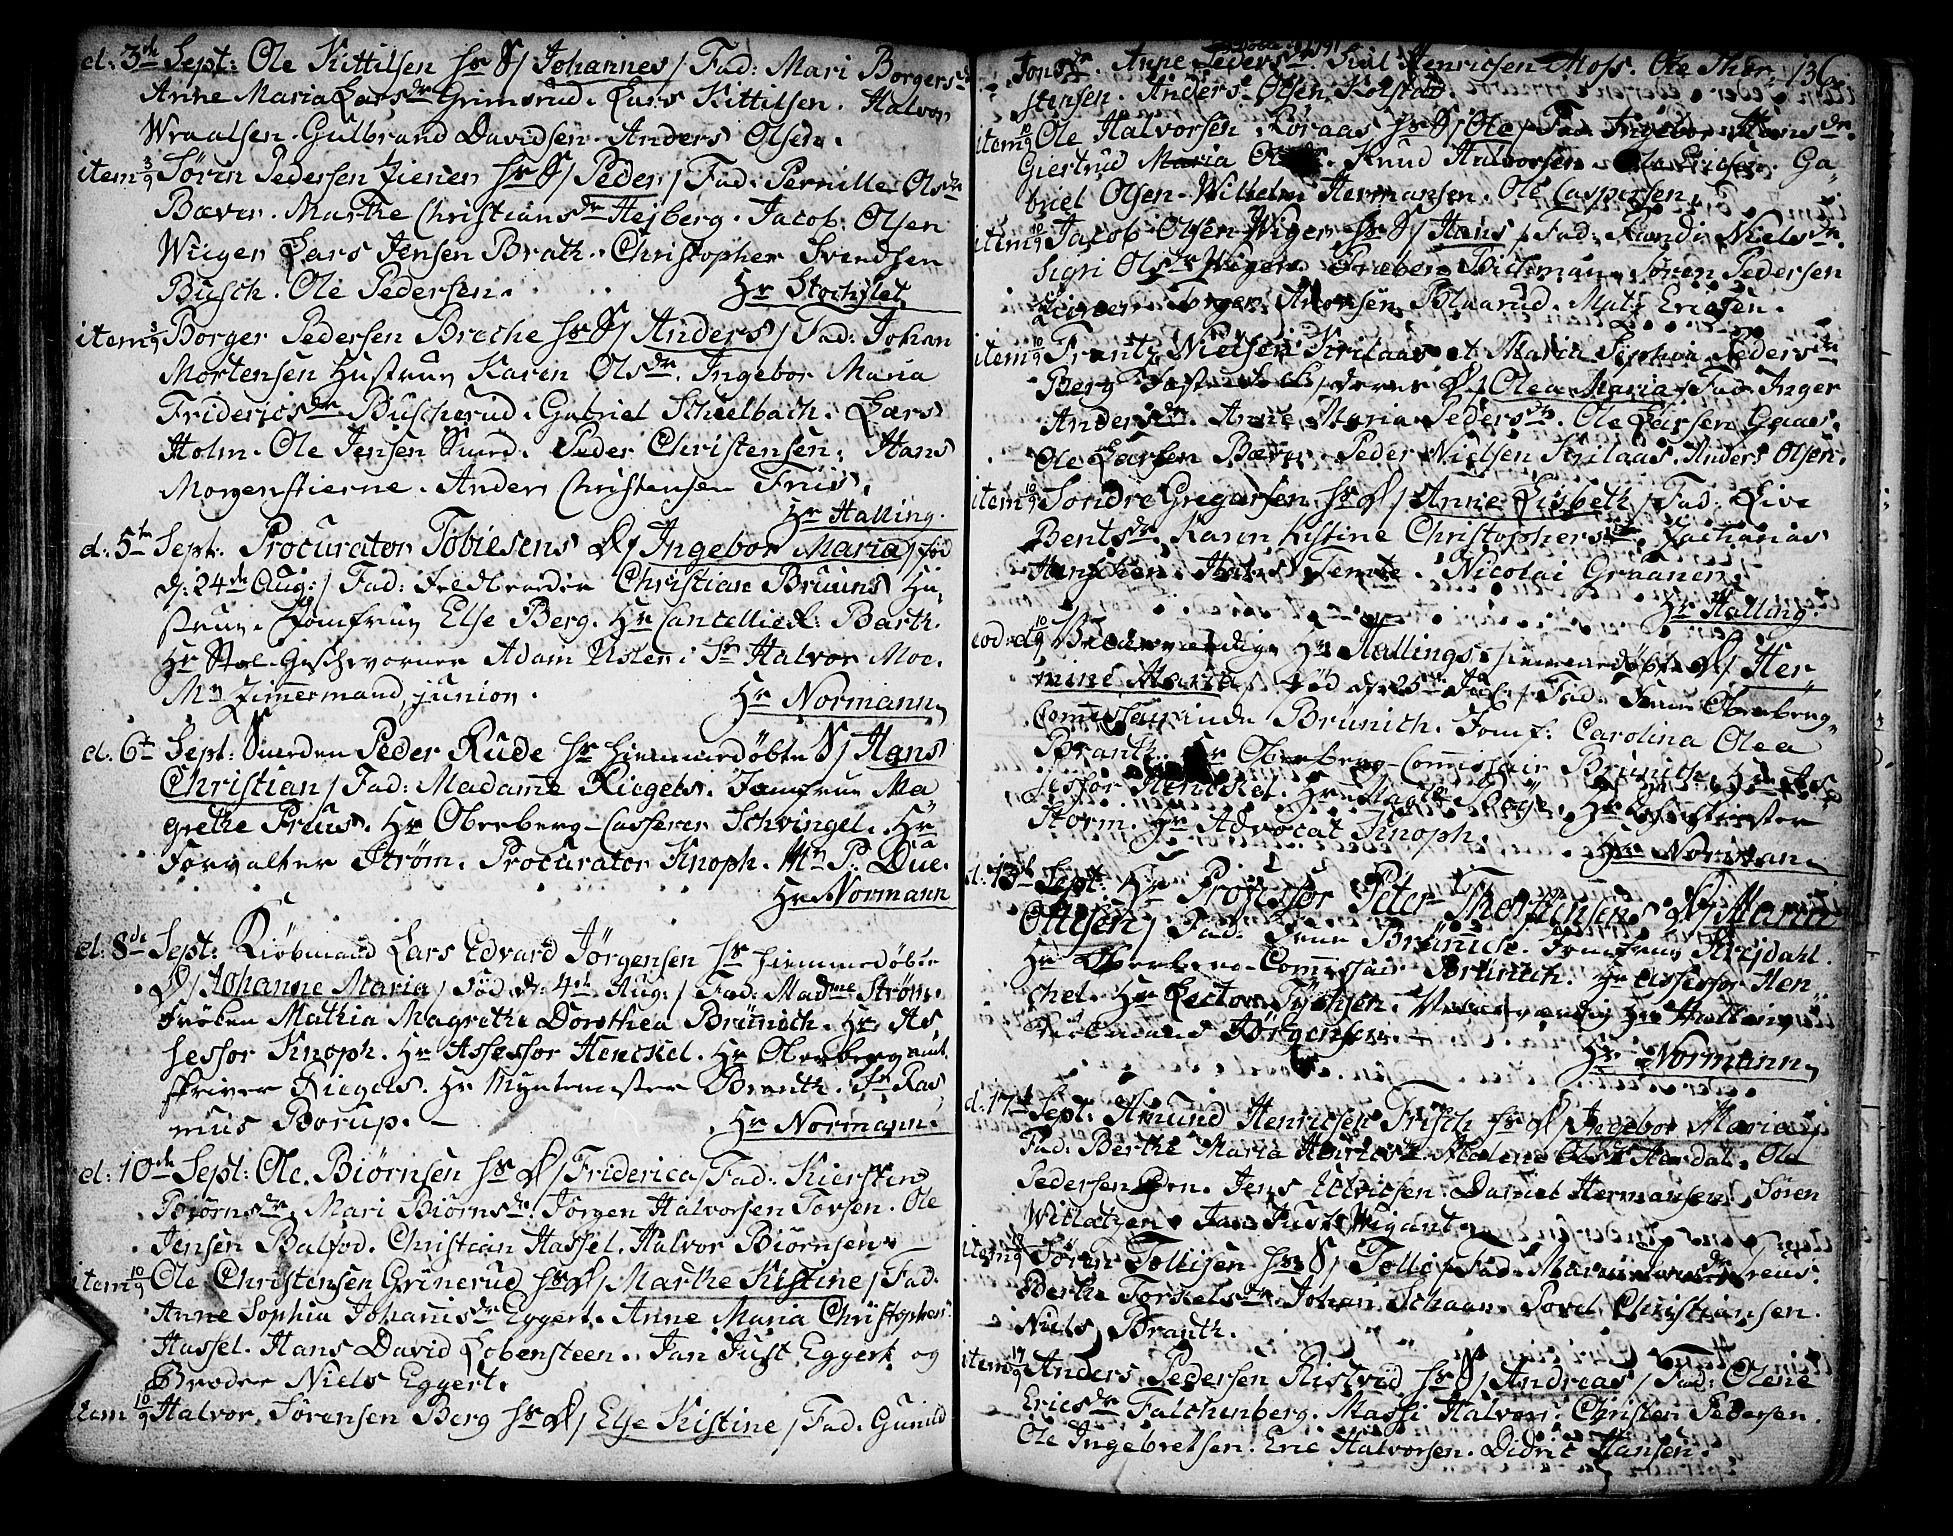 d: 3de Sept: Ole Kittilsen hr S/ Johannes / Fad: Mari Borgersdr
Anne Maria Larsdr Grimsrud. Lars Kittilsen. Halvor
Wraalsen. Gulbrand Davidsen. Anders Olsen.
item 3/9 Søren Pedersen Ziener hr S/ Peder / Fad: Pernille Olsdr
Bæver. Marthe Christiansdr Hejberg. Jacob Olsen
Wiiger Lars Jensen Brath. Christopher Svendsen
Busch. Ole Pedersen. Hr Stochflet
item 3/9 Borger Pedersen Breche hr S/ Anders / Fad: Johan
Mortensen Hustrue Karen Olsdr. Ingebor Maria
Fridericsdr Buscherud. Gabriel Scheelbach. Lars
Holm. Ole Jensen Smed. Peder Christensen. Hans
Morgenstierne. Anders Christensen Friis.
Hr Halling.
d: 5te Sept: Procurator Tobiesens D/ Ingebor Maria / fød
d: 24de Aug: / Fad: Feldbereder Christian Bruuns Hu-
strue. Jomfrue Else Berg. Hr Cancellied: Barth.
Hr Stol-Geschworner Adam Usler. Sr Halvor Moe.
Mr Zimmermand, junior. Hr Normann
d: 6te Sept: Smeden Peder Rude hr hiemmedøbte S/ Hans
Christian / Fad: Madame Riegels. Jomfrue Ma
grethe Pruus. Hr Oberberg-Casserer Schvingel. Hr
Forvalter Strøm. Procurator Knoph. Mr P. Due.
Hr Normann
d: 8de Sept: Kiøbmand Lars Edvard Jørgensen hr hiemmedøbte
D/ Johanne Maria / fød d: 4de Aug: / Fad: Madme Strøm.
Frøken Mathia Magrethe Dorothea Brünnich. Hr As
sessor Knoph. Hr Assessor Henckel. Hr Oberbergamt
skriver Riegels. Hr Myntemester Branth. Sr Ras
mus Borup. Hr Normann.
d: 10de Sept: Ole Biørnsen hr D/ Friderica / Fad: Kierstine
Biørnsdr. Mari Biørnsdr. Jørgen Halvorsen Torsen. Ole
Jensen Balfod. Christian Hassel. Halvor Biørnsen
item 10/9 Ole Christensen Grinerud hr D/ Marthe Kistine / Fad:
Anne Sophia Johanisdr Eggert. Anne Maria Christophersdr
Hassel. Hans David Lobensteen. Jan Just Eggert og
Broder Niels Eggert.
item 10/9 Halvor Sørensen Berg hr D/ Else Kistine / Fad: Gunild
Jonsdr. Anne Pedersdr. Henricsen Moss. Ole Thor- 136
stensen. Anders Olsen Kolstad.
item 10/9 Ole Halvorsen Koraas hr S/ Ole / Fad: Ingebor Hansdr.
Giertrud Maria Knud Halvorsen. Ole Ericsen. Ga-
briel Olsen. Wilhelm Hermansen. Ole Caspersen.
item 10/9 Jacob Olsen Wiger hr S/ Hans / Fad: Randi Nielsdr.
Sigri Olsdr Wiger. Søren Pedersen
Ziener. Blaarud. Mats Ericsen.
item 10/9 Frantz Nielsen Krilaas et Maria Sophia Pedersdr
Berg deres D/ Olea Maria / Fad: Inger
Andersdr. Anne Maria Pedersdr. Ole Larsen Gaas.
Ole Larsen Bæver. Peder Nielsen Krilaas. Anders Olsen.
item 10/9 Sondre Gregarsen hr D/ Anne Lisbeth / Fad: Live
Bentsdr. Karen Kistine Christophersdr. Zacharias
Nicolai Graanen.
Hr Halling.
eod: d 10/9 Velærværdige Hr Hallings hiemmedøbte D/ Her-
mine Maria / fød d: 25de / Fad: Frue Oberberg-
Commissairinde Brünich. Jomf: Carolina Olea
Branth. Hr Oberberg-Commissair Brünich. Hr As
sessor Henckel. Hr
Storm. Hr Advocat Knoph.
Hr Normann
d: 13de Sept: Hr Professor Peter D/ Maria
Fad: Frue Brünnich. Jomfrue Krejdahl.
Hr Oberberg-Commissair Brünich. Hr Assessor Hen-
chel. Hr Lector Velærværdig Hr Halling
Kiøbmand Jørgensen.
Hr Normann
d: 17de Sept. Amund Henricsen Frisch hr D/ Ingebor Maria /
Fad: Berthe Maria Henricsdr. Malene Olsdr Aardal. Ole
Pedersen Jens Ulricsen. Daniel Hermansen. Søren
Jan Just Wigant
item Søren Tollisen hr S/ Tolle / Fad: Maria
Berthe Torkelsdr. Johan Schaan. Povel Christiansen.
Niels Branth.
item 17/9 Anders Pedersen Ristvid hr S/ Andreas / Fad: Olene
Ericsdr Falchenberg. Massi Halvorsdr. Christen Pedersen.
Ole Ingebretsen. Eric Halvorsen. Didric Hansen.